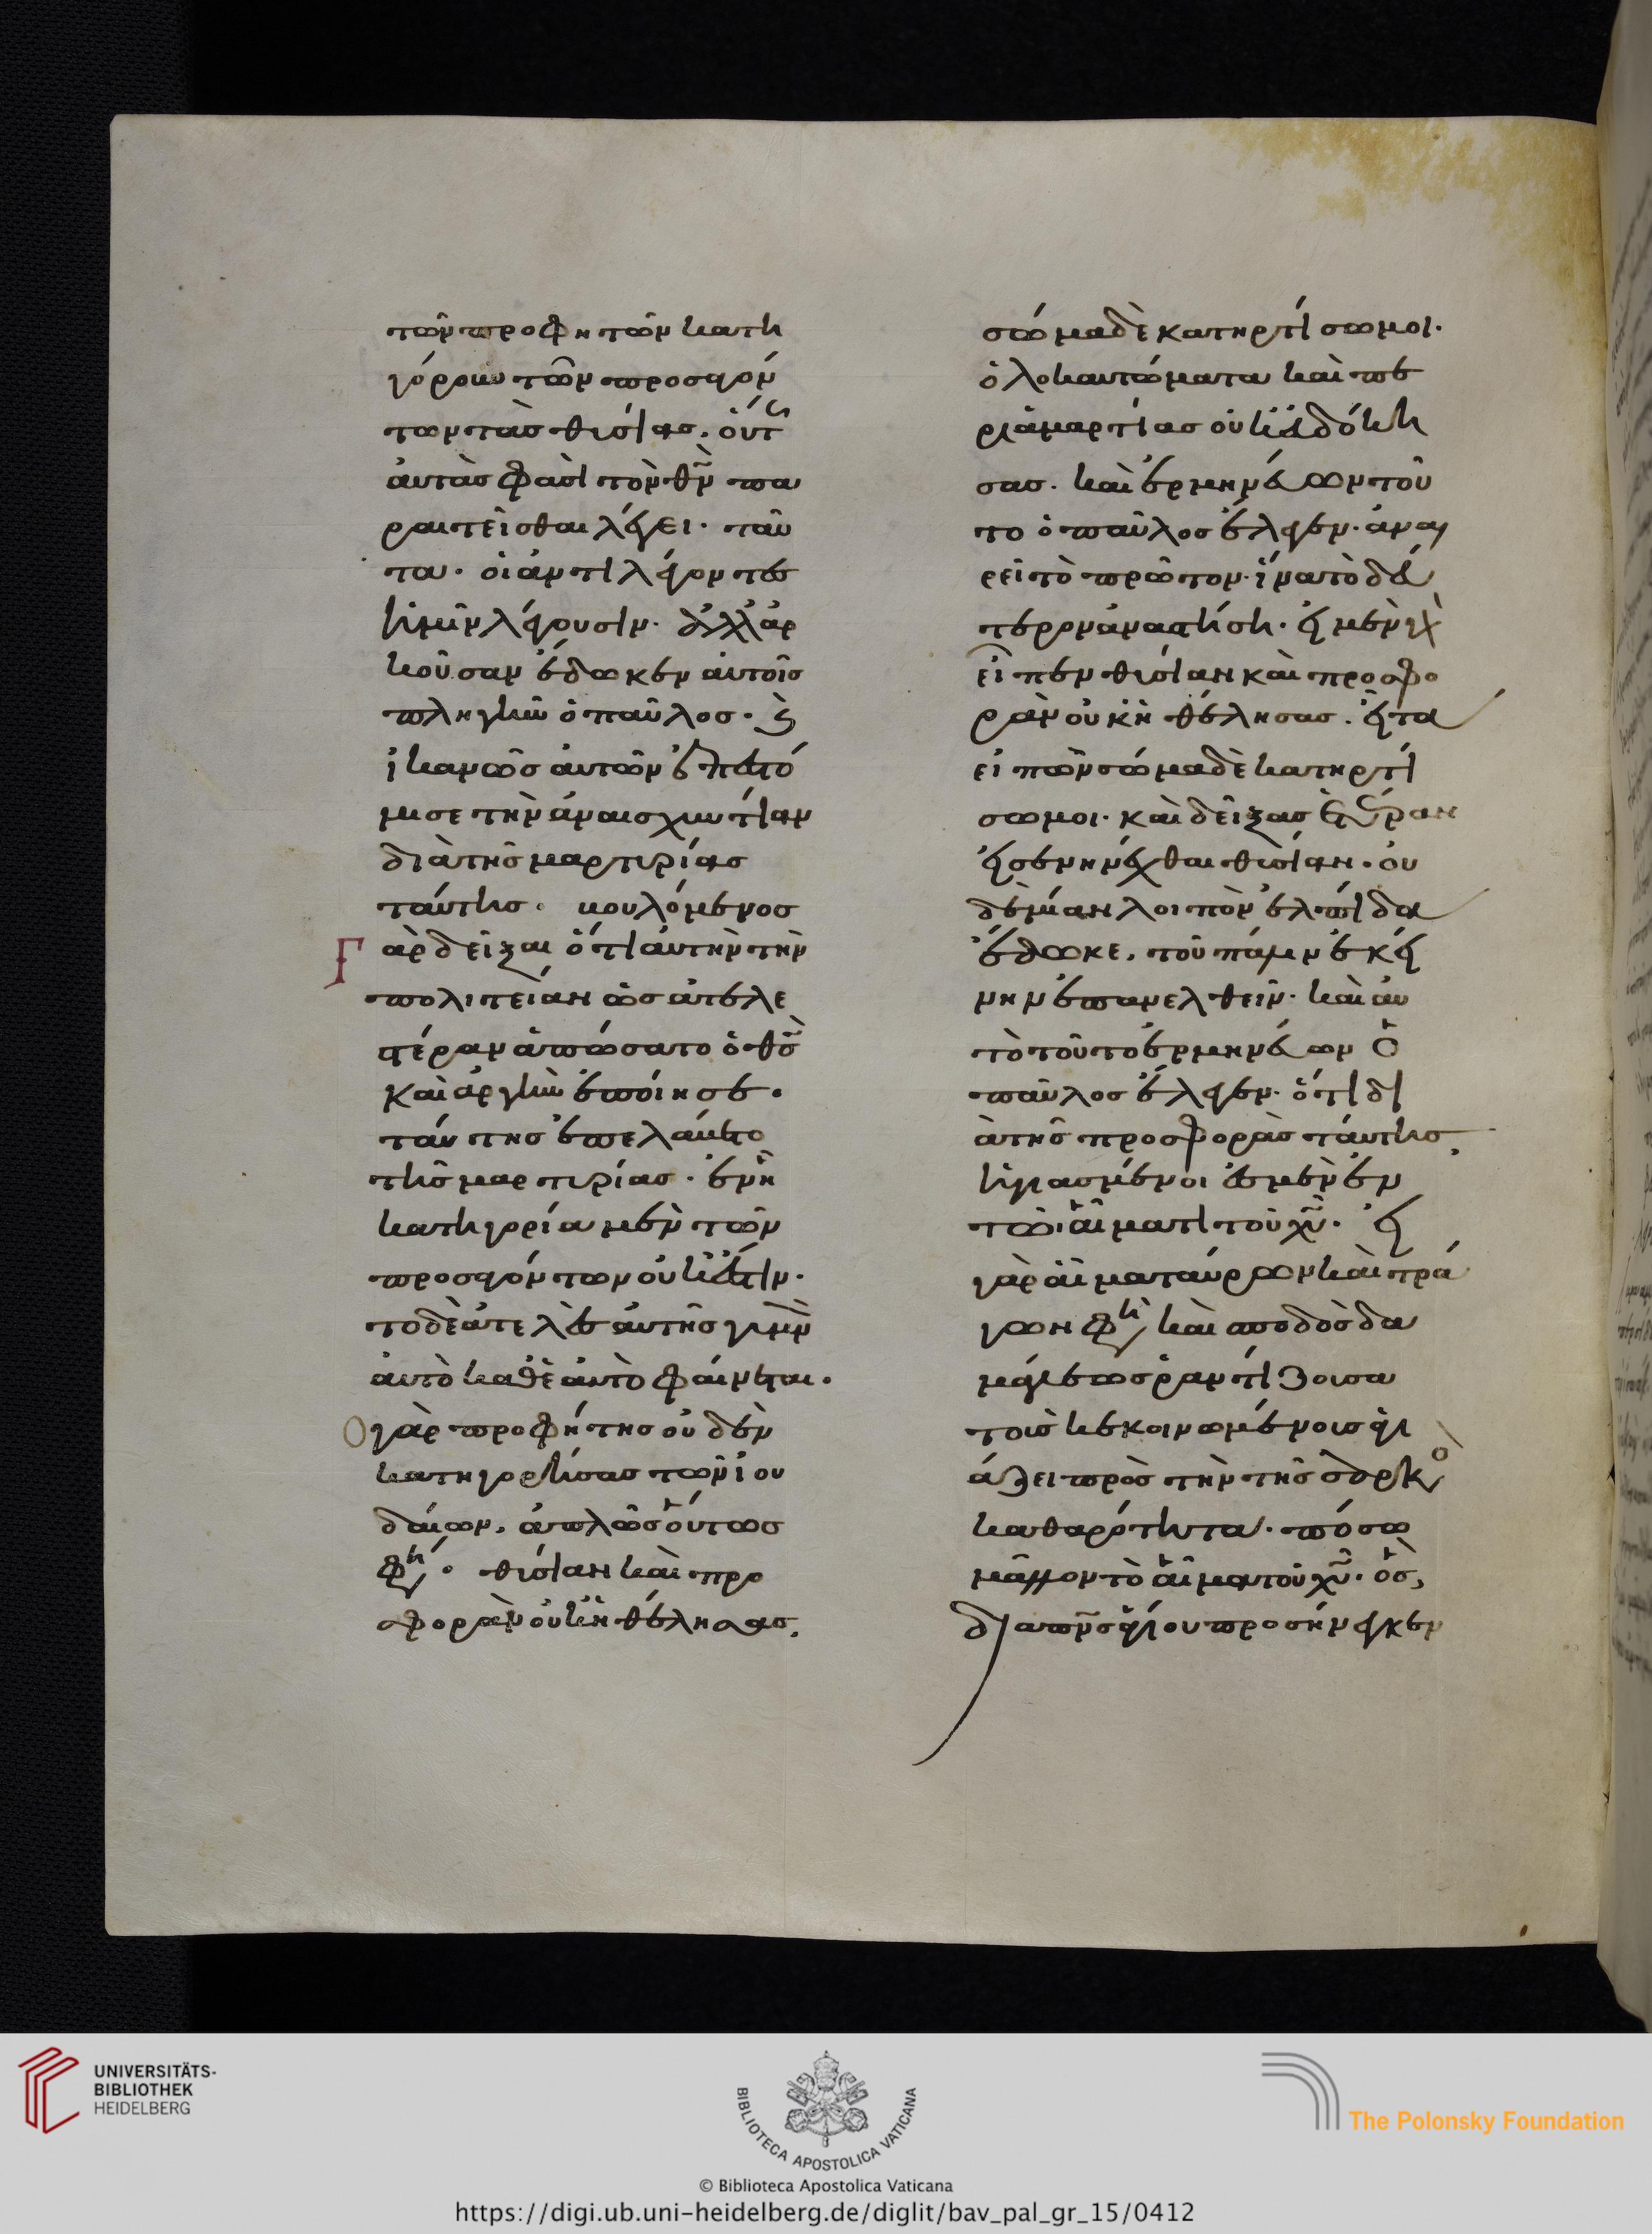 τῶν προφητῶν κατη
γόρουν τῶν προσφερόν
των τὰς θυσίας. οὕτ
ἀυτὰς φασὶ τὸν θν̄ πα
ραιτεῖσθαι λέγει. ταῦ
τα. οἱ ἀντιλέγοντες
ἡμῖν λέγουσιν. ἀλλ' ἀρ
κοῦσαν ἔδωκεν ἀυτοῖς
πληγὴν ὁ παῦλος. ϗ
ἱκανῶς ἀυτῶν ἐπεστό
μισε τὴν ἀναισχυντίαν
διὰ τῆς μαρτυρίας
ταύτης. βουλόμενος
Γὰρ δεῖξαι ὅτι ἀυτὴν τὴν
πολιτείαν ὡς ἀτελε
στέραν ἀπώσατο ὁ θς̄
καὶ ἀργὴν ἐποίησε.
ταύτης ἐπελάβετο
τῆς μαρτυρίας. ἐν ἧ
κατηγορία μὲν τῶν
προσφερόντων οὐκ ἔστιν.
τὸ δὲ ἀτελὲς ἀυτῆς γυμνὸν
ἀυτὸ καθ' ἑαυτὸ φαίνεται.
Ὁ γὰρ προφήτης οὐδὲν
κατηγορήσας τῶν ἰου
δαίων. ἁπλῶς οὕτως
φη. θυσίαν καὶ προ
σφορὰν οὐκ ἠθέλησας.
σῶμα δὲ κατηρτίσω μοι.
ὁλοκαυτώματα καὶ πε
ρὶ ἁμαρτίας οὐκ ἐυδόκη
σας. καὶ ἑρμηνεύων τοῦ
το ὁ παῦλος ἔλεγεν. ἀναι
ρεῖ τὸ πρῶτον. ἵνα τὸ δεύ
τερον ἀναστήση. εἰ μὲν γὰρ
εἶπεν θυσίαν καὶ προσφο
ρὰν οὐκ ἠθέλησας. εἶτα
εἰπὼν σῶμα δὲ κατηρτί
σω μοι. καὶ δείξας ἑτέραν
εἰσενηνέχθαι θυσίαν. οὐ
δεμίαν λοιπὸν ἐλπίδα
ἔδωκε, τοῦ πάλιν ἐκεί
νην ἐπανελθεῖν. καὶ ἀυ
τὸ τοῦτο ἑρμηνεύων ὁ
παῦλος ἔλεγεν. ὅτι δι
ὰ τῆς προσφορᾶς ταύτης
ἡγιασμένοι ἐσμὲν ἐν
τῶι αἵματι τοῦ χῡ. εἰ
γὰρ αἷμα ταύρων καὶ τρά
γων φη καὶ σποδὸς δα
μάλεως ῥαντίζουσα
τοὺς κεκοινωμένους ἁγι
άζει πρὸς τὴν τῆς σαρκὸ
καθαρότητα. πόσω
μᾶλλον τὸ αἷμα τοῦ χῡ. ὃς,
διὰ πνς̄ ἁγίου προσήνεγκεν
UNIVERSITÄTS-
BIBLIOTHEK
HEIDELBERG
BIBLIOTECA APOSTOLICA VATICANA
The Polonsky Foundation
© Biblioteca Apostolica Vaticana
https://digi.ub.uni-heidelberg.de/diglit/bav_pal_gr_15/0412